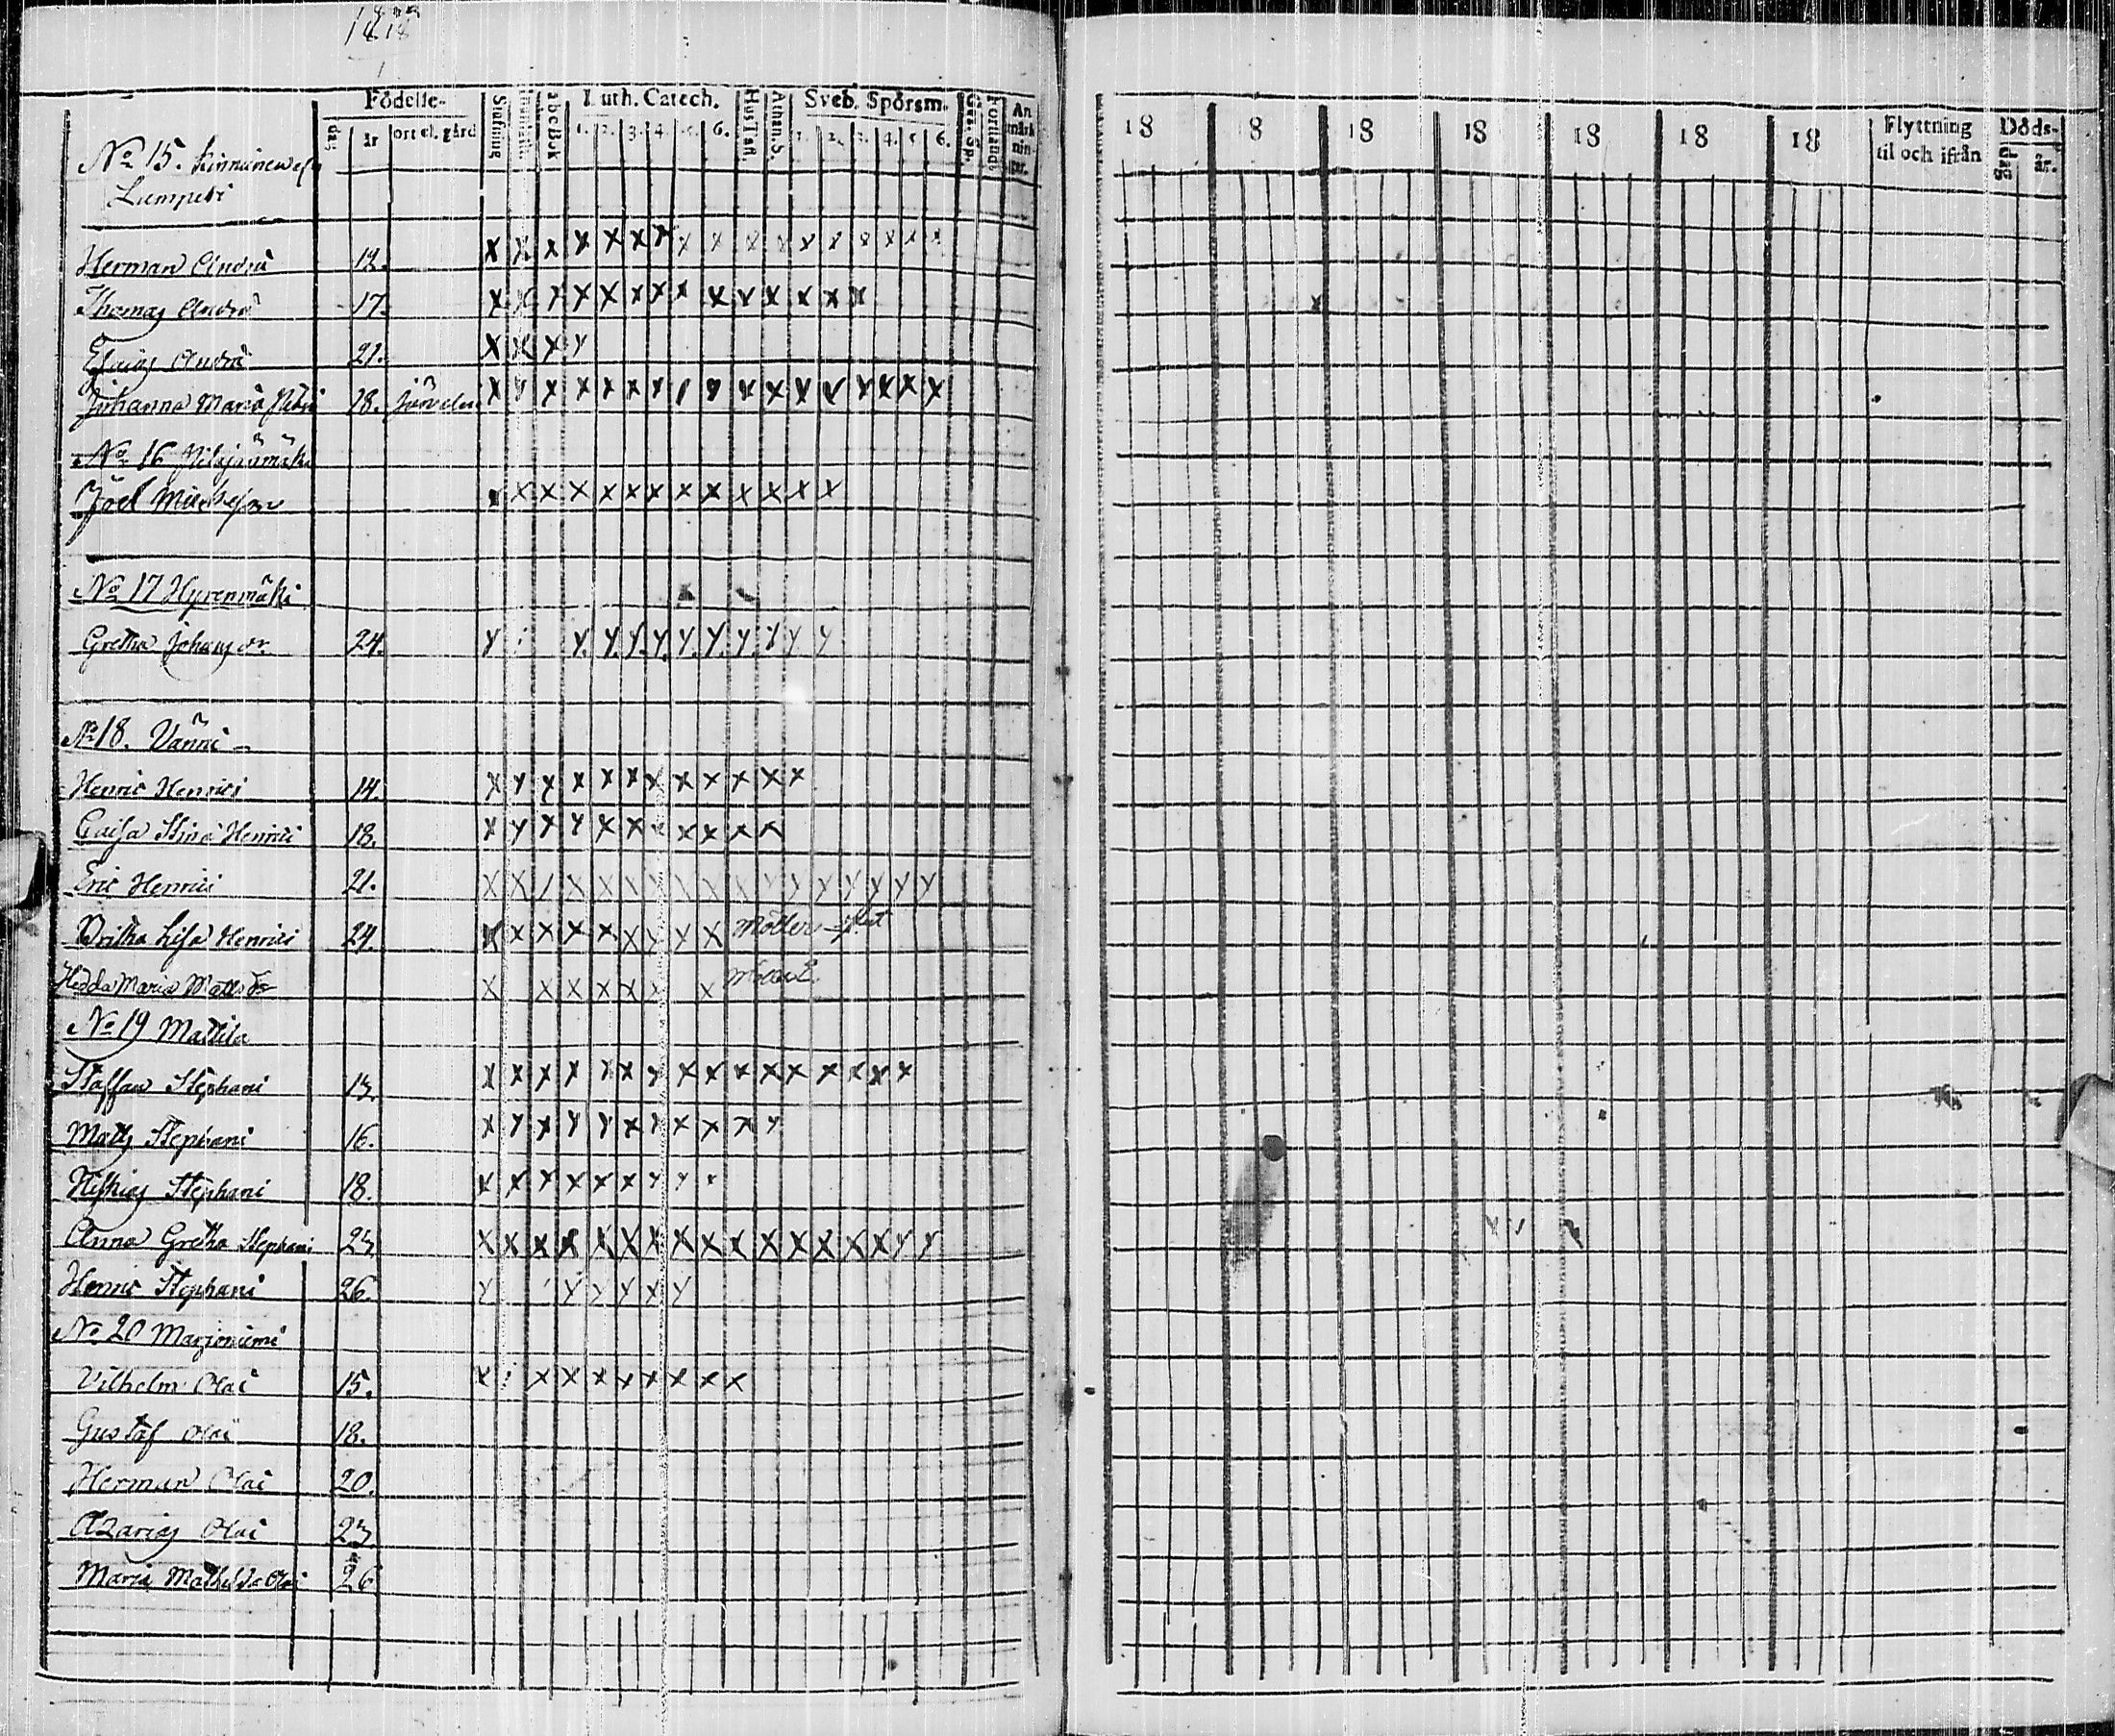 Födelse-
dag
år
ort el. gård
Stafning
abc Bok
Luth. Catech.
1. 2. 3. 4. 5. 6.
Hus Tafl.
Athan. S.
Sveb. Spörsm.
1. 2. 3. 4. 5. 6.
Förstånd.
An
märk
nin-
gar.
18 18 18 18 18 18 18
Flyttning
til och ifrån
Döds-
dag
år.
No 15.
Lumperi
Herman Andrä 12.
Thomas Andrä 17.
Andrä 21.
Johanna Maria 18.
No 16
Joel Michelson
No 17 Hyrenmäki
Gretha Johans dr. 24.
No 18. Vänni
Henric Henrici 14.
Caisa Stina Henrici 18.
Eric Henrici 21.
Britha Lisa Henrici 24.
Hedda Maria Matts dr
No 19 Mattila
Staffan Stephani 13.
Matts Stephani 16.
Stephani 18.
Anna Gretha Stephani 23.
Henric Stephani 26.
No 20 Marjoniemi
Vilhelm Olai 15.
Gustaf Olai 18.
Herman Olai 20.
Azarias Olai 23
Maria Mathilda Olai 26